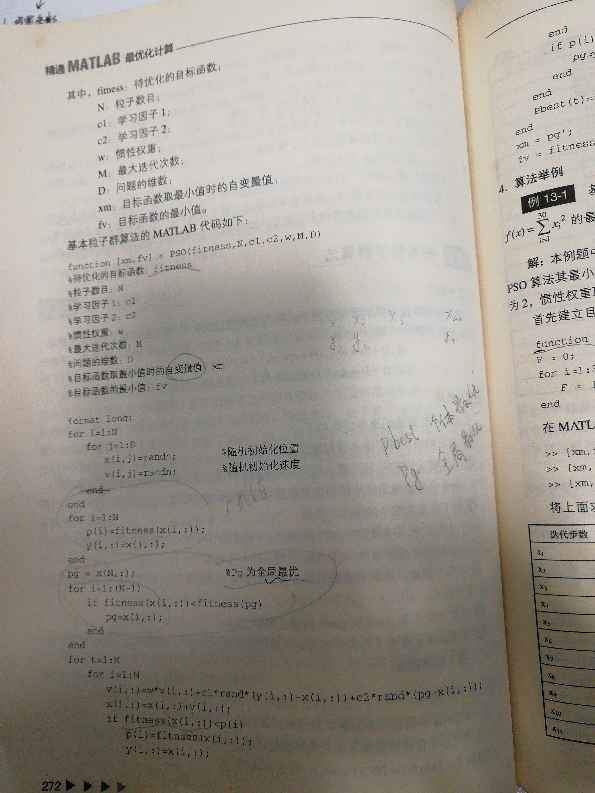 精通 MATLAB 最优化计算
其中，fitness：待优化的目标函数；
N：粒子数目；
c1：学习因子 1；
c2：学习因子 2；
w：惯性权重；
M：最大迭代次数；
D：问题的维数；
xm：目标函数取最小值时的自变量值；
fv：目标函数的最小值。
基本粒子群算法的 MATLAB 代码如下：
function [xm,fv] = PSO(fitness,N,c1,c2,w,M,D)
%待优化的目标函数：fitness
%粒子数目：N
%学习因子 1：c1
%学习因子 2：c2
%惯性权重：w
%最大迭代次数：M
%问题的维数：D
%目标函数取最小值时的自变量值：xm
%目标函数的最小值：fv
format long;
for i=1:N
for j=1:D
x(i,j)=randn; %随机初始化位置
v(i,j)=randn; %随机初始化速度
end
end
for i=1:N
p(i)=fitness(x(i,:));
y(i,:)=x(i,:);
end
pg = x(N,:); %Pg 为全局最优
for i=1:(N-1)
if fitness(x(i,:))<fitness(pg)
pg=x(i,:);
end
end
for t=1:M
for i=1:N
v(i,:)=w*v(i,:)+c1*rand*(y(i,:)-x(i,:))+c2*rand*(pg-x(i,:));
x(i,:)=x(i,:)+v(i,:);
if fitness(x(i,:))<p(i)
p(i)=fitness(x(i,:));
y(i,:)=x(i,:);
272
Pbest 个体最优
Pg 全局最优
end
if p(i)
pg=
end
end
Pbest(t)=
end
xm = pg';
fv = fitness
4. 算法举例
例 13-1
f(x)=∑xi² 的最
解：本例题中
PSO 算法其最小
为 2，惯性权重
首先建立目
function
F = 0;
for i=1:
F =
end
在 MATL
>> [xm,
>> [xm,
>> [xm,
将上面求
迭代步数
x1
x2
x3
x4
x5
x6
x7
x8
x9
x10